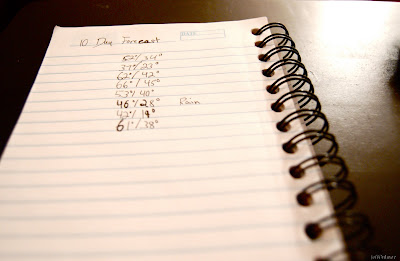 10 Day Forecast DATE
52°/34°
39°/23°
62°/42°
66°/45°
53°/40°
46°/28° Rain
42°/19°
61°/38°